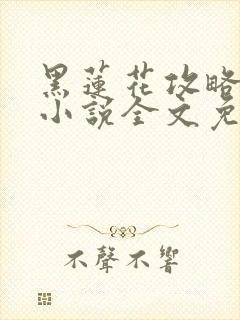 黑蓮花攻略
小說全文免
不聲不響